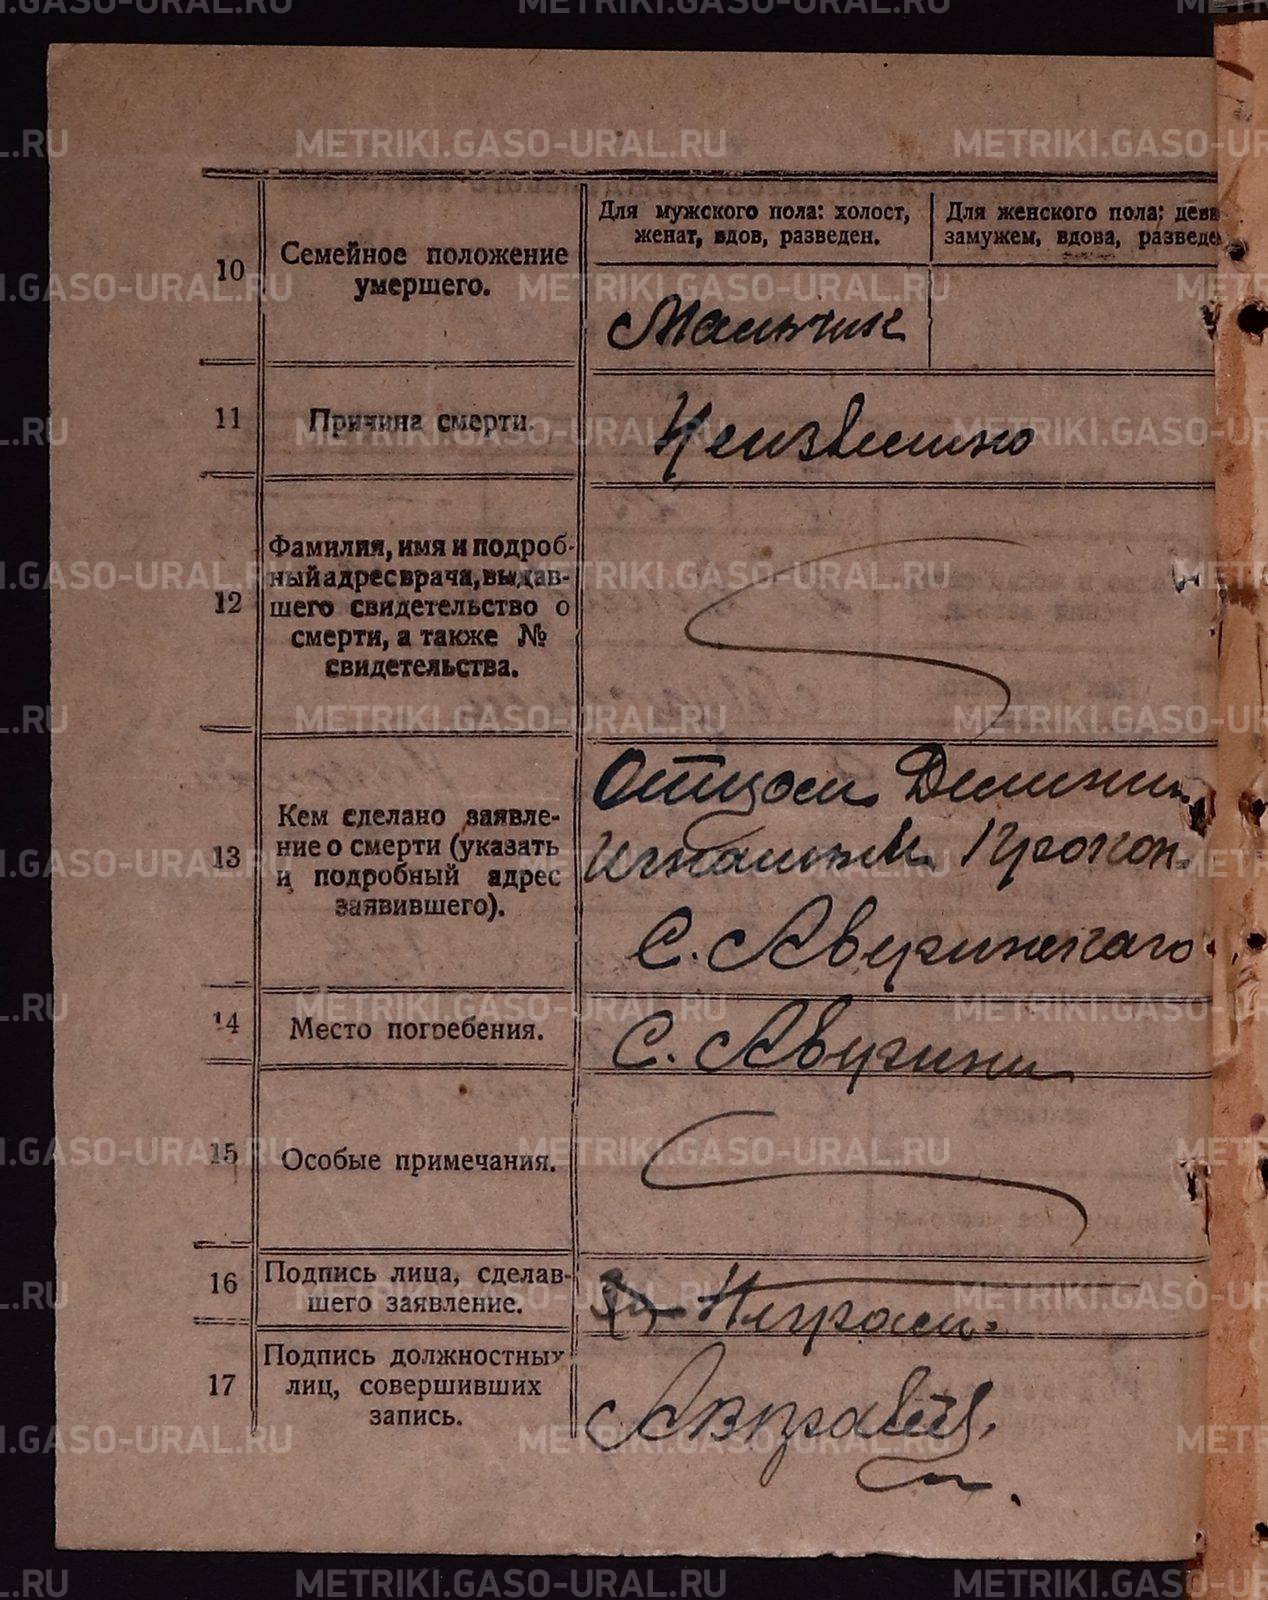 10
Семейное положение
умершего.
Для мужского пола: холост,
женат, вдов, разведен.
Для женского пола: деви
замужем, вдова, разведе
Мальчик
11
Причина смерти.
Неизвестно
12
Фамилия, имя и подроб-
ный адрес врача, выдав-
шего свидетельство о
смерти, а также №
свидетельства.
13
Кем сделано заявле-
ние о смерти (указать
и подробный адрес
заявившего).
Отцом
С. Аверинского
14
Место погребения.
С. Аверини
15
Особые примечания.
16
Подпись лица, сделав-
шего заявление.
17
Подпись должностных
лиц, совершивших
запись.
METRIKI.GASO-URAL.RU